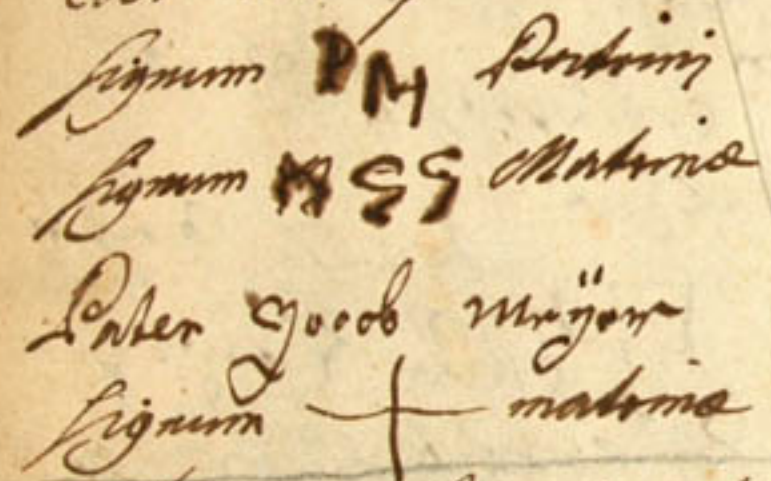 Signum PM Patrini
Signum MSS Matrinæ
Pater Jacob Meÿer
Signum + matrinæ